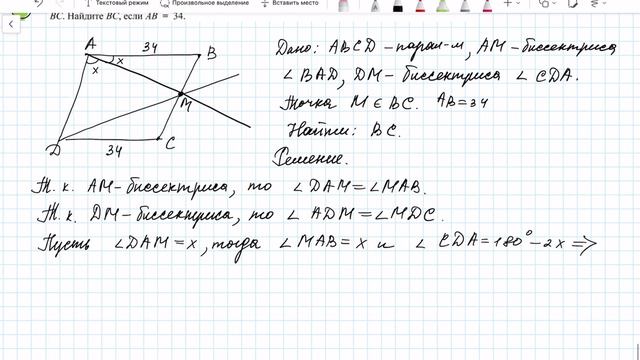 Текстовый режим Произвольное выделение Вставить место
BC. Найдите BC, если AB = 34.
A 34 B
x x
M
D 34 C
Дано: ABCD - парал-м, AM - биссектриса
∠ BAD, DM - биссектриса ∠ CDA.
Точка M ∈ BC. AB = 34
Найти: BC.
Решение.
Т. к. AM - биссектриса, то ∠DAM = ∠MAB.
Т. к. DM - биссектриса, то ∠ ADM = ∠MDC.
Пусть ∠DAM = x, тогда ∠MAB = x и ∠ CDA = 180° - 2x ⇒